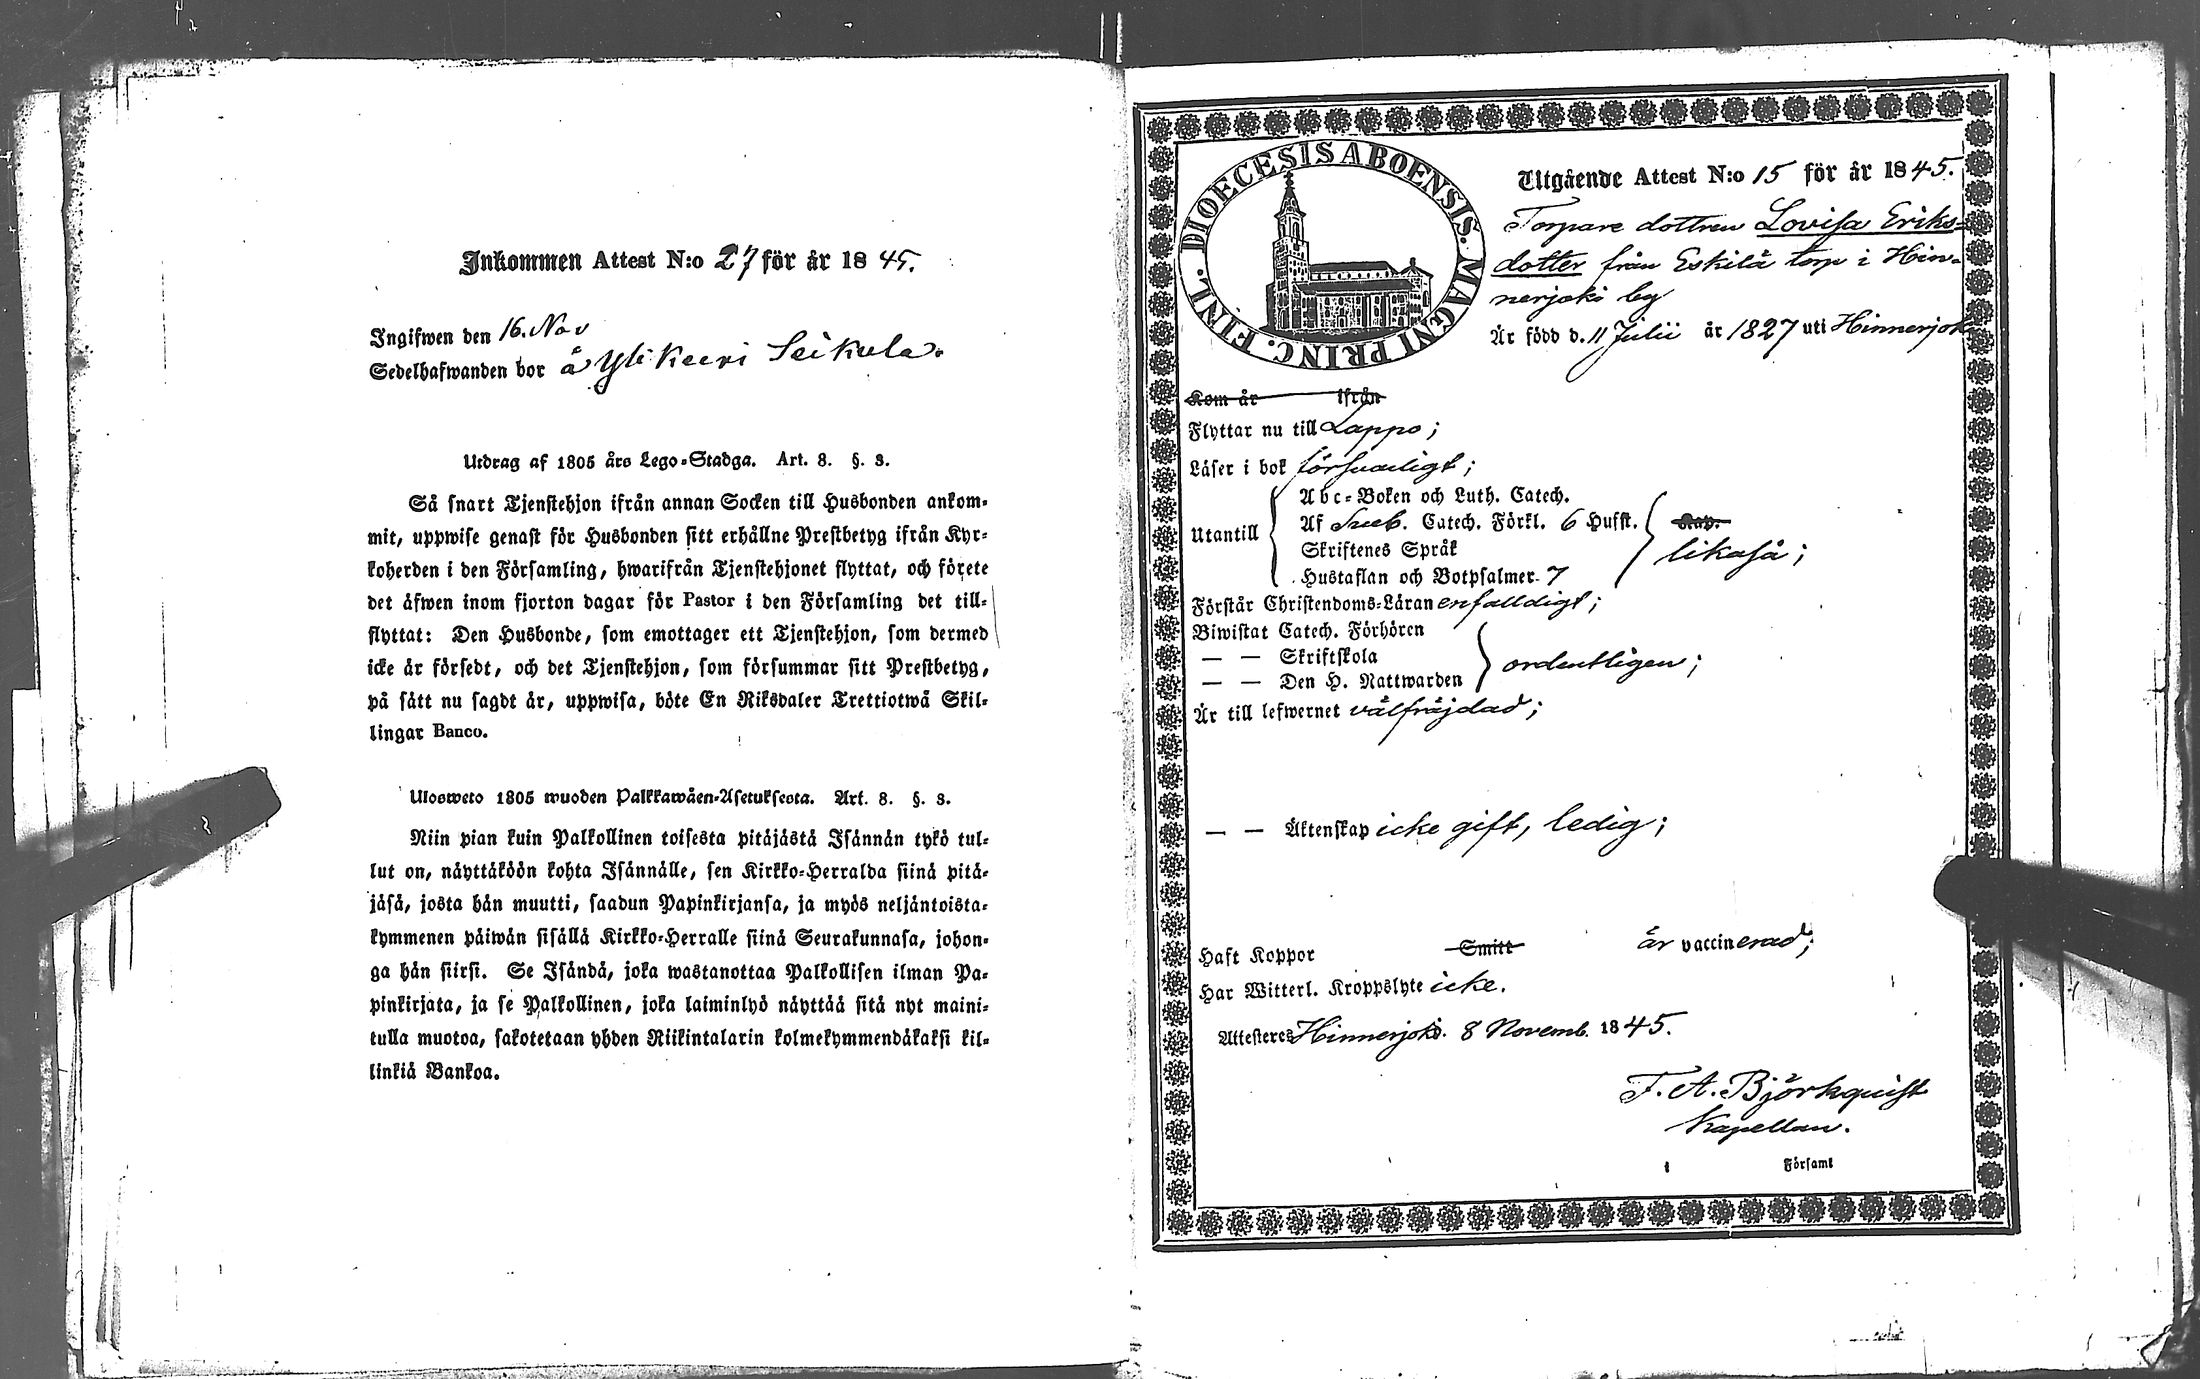 Inkommen Attest N:o 27 för år 1845.
Ingifwen den 16. Nov
Sedelhafwanden bor å Yli Keeri Seikula.
Utdrag af 1805 års Lego-Stadga. Art. 8. §. 3.
Så snart Tjenstehjon ifrån annan Socken till Husbonden ankom-
mit, uppwise genast för Husbonden sitt erhållne Prestbetyg ifrån Kyr-
koherden i den Församling, hwarifrån Tjenstehjonet flyttat, och förete
det äfwen inom fjorton dagar för Pastor i den Församling det till-
flyttat: Den Husbonde, som emottager ett Tjenstehjon, som dermed
icke är försedt, och det Tjenstehjon, som försummar sitt Prestbetyg,
på sätt nu sagdt är, uppwisa, böte En Riksdaler Trettiotwå Skil-
lingar Banco.
Ulosweto 1805 wuoden Palkkawäen-Asetuksesta. Art. 8. §. 3.
Niin pian kuin Palkollinen toisesta pitäjästä Isännän tykö tul-
lut on, näyttäköön kohta Isännälle, sen Kirkko-Herralda siinä pitä-
jäsä, josta hän muutti, saadun Papinkirjansa, ja myös neljäntoista-
kymmenen päiwän sisällä Kirkko-Herralle siinä Seurakunnasa, johon-
ga hän siirsi. Se Isändä, joka wastanottaa Palkollisen ilman Pa-
pinkirjata, ja se Palkollinen, joka laiminlyö näyttää sitä nyt maini-
tulla muotoa, sakotetaan yhden Riikintalarin kolmekymmendäkaksi kil-
linkiä Bankoa.
DIOECESIS ABOENSIS. MAGNI PRINC. FINL.
Utgående Attest N:o 15 för år 1845.
Torpare dottren Lovisa Eriks-
dotter från Eskilä torp i Hin-
nerjoki by
Är född d. 11 Julii år 1827 uti Hinnerjoki
Kom år ifrån
Flyttar nu till Lappo;
Läser i bok försvarligt;
Utantill
Abc-Boken och Luth. Catech.
Af Sveb. Catech. Förkl. 6 Hufst.
Skriftenes Språk
Hustaflan och Botpsalmer 7
Kap.
likaså;
Förstår Christendoms-Läran enfalldigt;
Biwistat Catech. Förhören
— — Skriftskola
— — Den H. Nattwarden
ordentligen;
Är till lefwernet välfräjdad;
— — Äktenskap icke gift, ledig;
Haft Koppor Smitt är vaccinerad;
Har Witterl. Kroppslyte icke.
Attesteres Hinnerjoki. 8 Novemb. 1845.
F. A. Björkquist
Kapellan.
i Församl